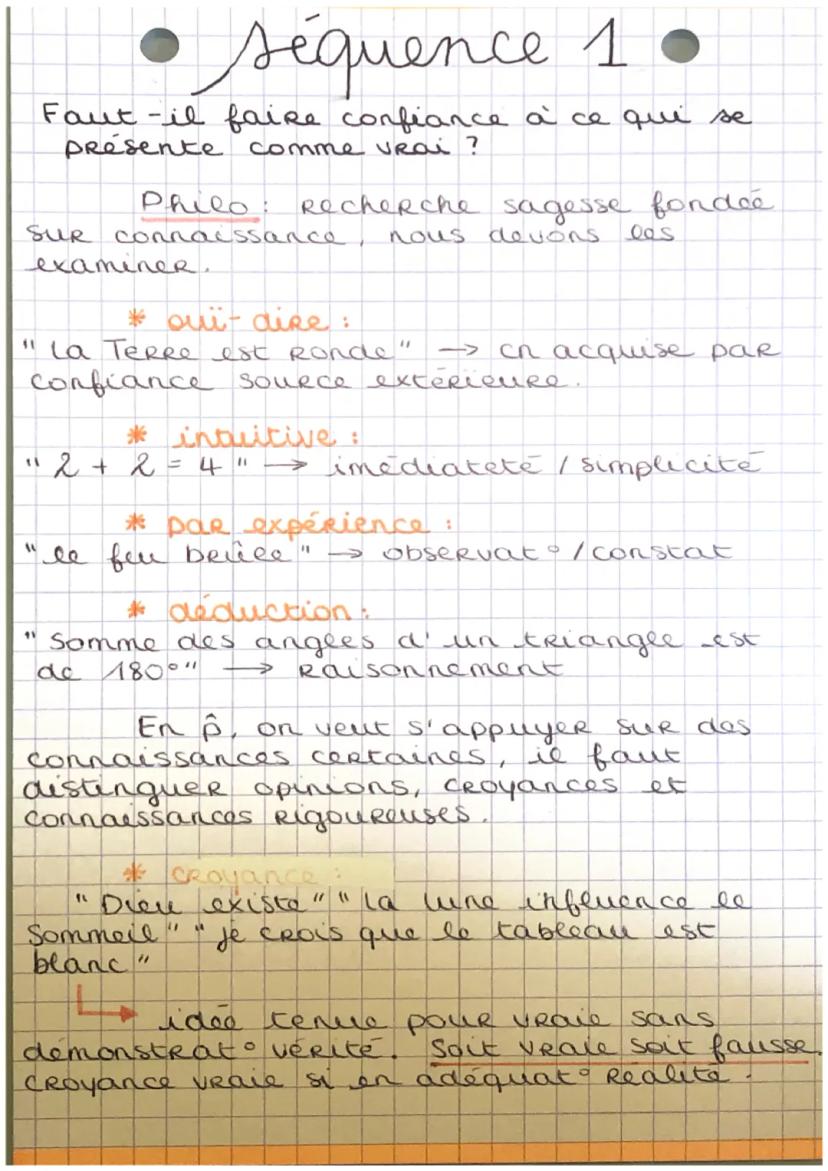 Séquence 1
Faut-il faire confiance à ce qui se
présente comme vrai ?
Philo : recherche sagesse fondée
sur connaissance, nous devons les
examiner.
* ouï-dire :
"la Terre est ronde" → cn acquise par
confiance source extérieure.
* intuitive :
"2 + 2 = 4" → imédiateté / simplicité
* par expérience :
"le feu brûle" → observat° / constat
* déduction :
"Somme des angles d'un triangle est
de 180°" → raisonnement
En p̂, on veut s'appuyer sur des
connaissances certaines, il faut
distinguer opinions, croyances et
connaissances rigoureuses.
* croyance :
"Dieu existe" "la lune influence le
sommeil" "je crois que le tableau est
blanc"
↳ idée tenue pour vraie sans
démonstrat° vérité. Soit vraie soit fausse.
croyance vraie si en adéquat° réalité.